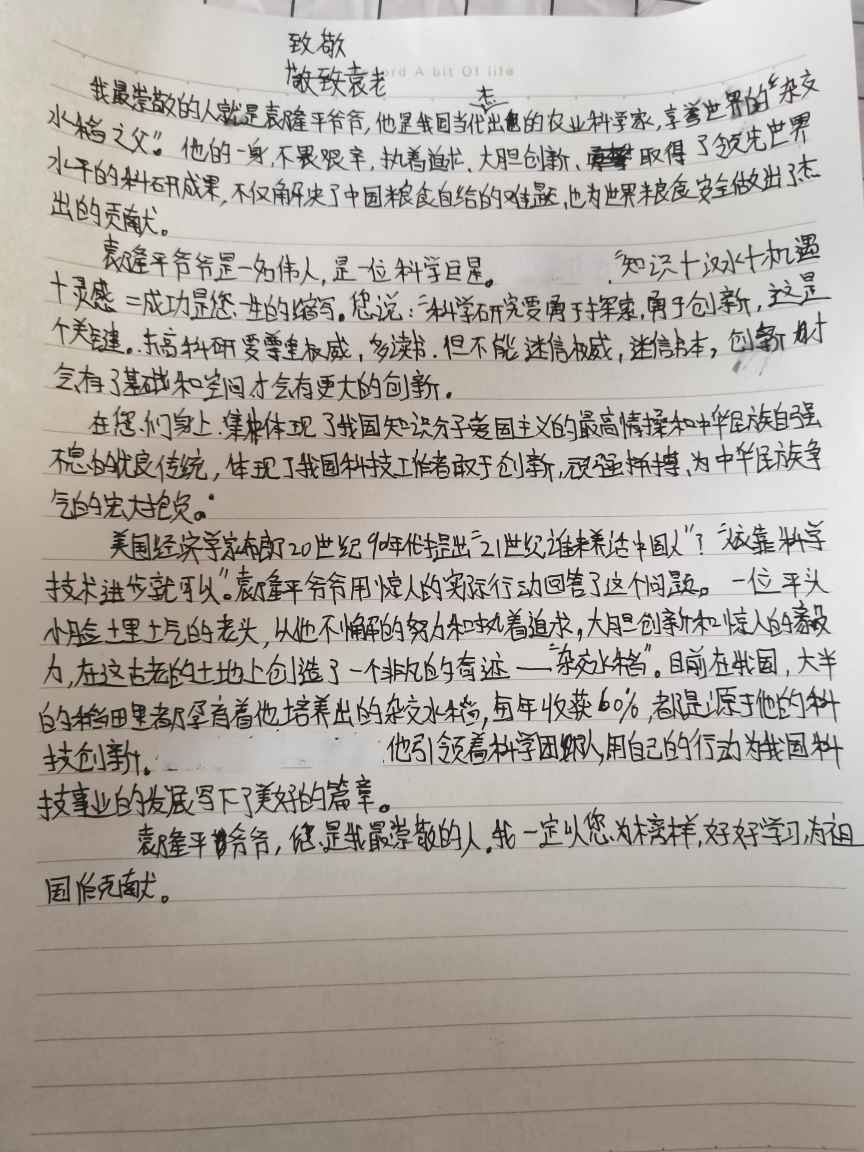 致敬
ord A bit Of life
敬致袁老
杰
我最崇敬的人就是袁隆平爷爷,他是我国当代出的农业科学家,享誉世界的“杂交
水稻之父”。他的一身,不畏艰辛,执着追求、大胆创新、取得了领先世界
水平的科研成果,不仅解决了中国粮食自给的难题,也为世界粮食安全做出了杰
出的贡献。
袁隆平爷爷是一名伟人,是一位科学巨星。“知识十汉水十机遇
十灵感=成功是您一生的缩写。您说:“科学研究要勇于探索,勇于创新,这是
个关键。搞科研要尊重权威,多读书.但不能迷信权威,迷信书本,创新时
会有了基础和空间才会有更大的创新。
在您们身上.集中体现了我国知识分子爱国主义的最高情操和中华民族自强
不息的优良传统,体现了我国科技工作者敢于创新,顽强拼搏、为中华民族争
气的宏大抱负。
美国经济学家布朗20世纪90年代提出“21世纪谁来养活中国人”?“依靠科学
技术进步就可以”。袁隆平爷爷用惊人的实际行动回答了这个问题。一位平头
小脸土里土气的老头,从他不懈的努力和执着追求,大胆创新和惊人的毅
力,在这古老的土地上创造了一个非凡的奇迹——“杂交水稻”。目前在我国,大半
的稻田里都孕育着他培养出的杂交水稻,每年收获60%,都是源于他的科
技创新。他引领着科学团队人,用自己的行动为我国科
技事业的发展写下了美好的篇章。
袁隆平爷爷,您是我最崇敬的人.我一定以您为榜样,好好学习,为祖
国作贡献。